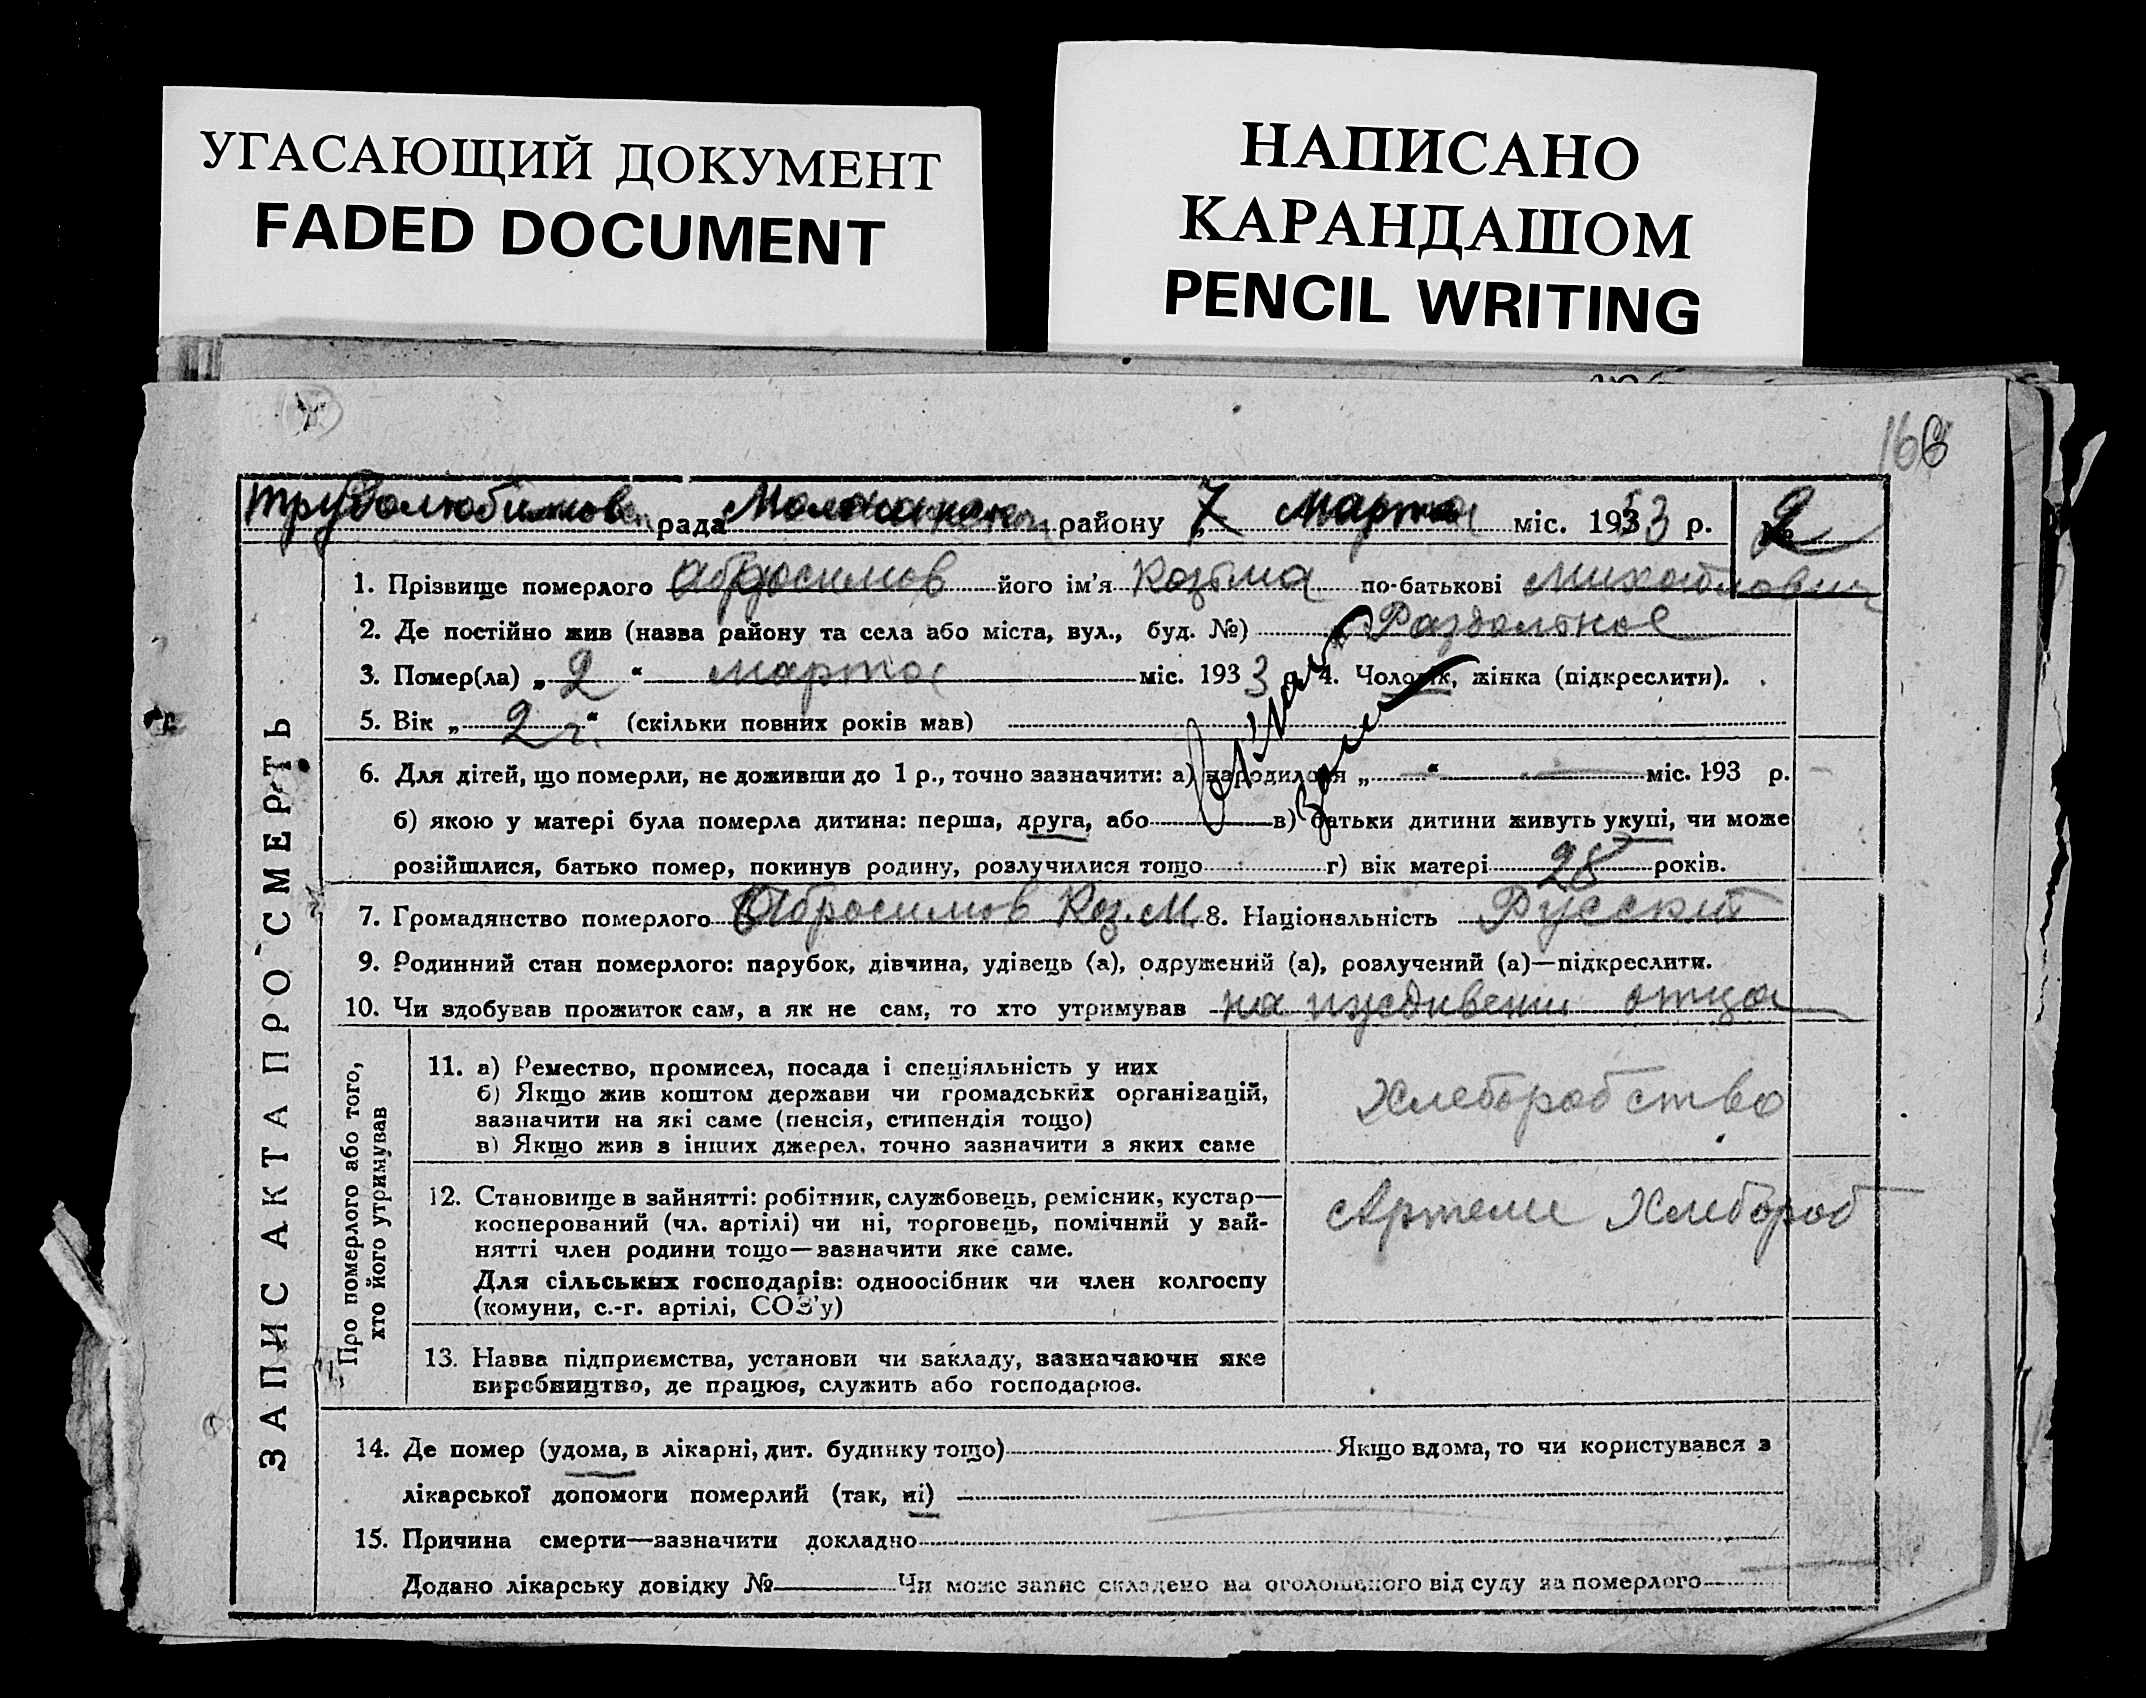 УГАСАЮЩИЙ ДОКУМЕНТ
FADED DOCUMENT
НАПИСАНО
КАРАНДАШОМ
PENCIL WRITING
166
Трудолюбимов рада району 7 Марта міс. 1933 р. № 2
ЗАПИС АКТА ПРО СМЕРТЬ
1. Прізвище померлого Абросимов його ім'я Козьма по-батькові Михайлович
2. Де постійно жив (назва району та села або міста, вул., буд. №) Раздольное
3. Помер(ла) „ 2 “ марта міс. 1933 р. 4. Чоловік, жінка (підкреслити).
5. Вік „ 2 г. “ (скільки повних років мав)
6. Для дітей, що померли, не доживши до 1 р., точно зазначити: а) народилося „ “ міс. 193 р.
б) якою у матері була померла дитина: перша, друга, або в) батьки дитини живуть укупі, чи може
розійшлися, батько помер, покинув родину, розлучилися тощо г) вік матері 28 років.
7. Громадянство померлого Абросимов Коз. М. 8. Національність Русский
9. Родинний стан померлого: парубок, дівчина, удівець (а), одружений (а), розлучений (а)—підкреслити.
10. Чи здобував прожиток сам, а як не сам, то хто утримував на иждивении отца
Про померлого або того,
хто його утримував
11. а) Ремество, промисел, посада і спеціяльність у них
б) Якщо жив коштом держави чи громадських організацій,
зазначити на які саме (пенсія, стипендія тощо)
в) Якщо жив з інших джерел, точно зазначити з яких саме
Хлеборобство
12. Становище в зайнятті: робітник, службовець, ремісник, кустар—
косперований (чл. артілі) чи ні, торговець, помічний у зай-
нятті член родини тощо—зазначити яке саме.
Для сільських господарів: одноосібник чи член колгоспу
(комуни, с.-г. артілі, СОЗ'у)
Артели Хлебороб
13. Назва підприємства, установи чи закладу, зазначаючи яке
виробництво, де працює, служить або господарює.
14. Де помер (удома, в лікарні, дит. будинку тощо) Якщо вдома, то чи користувався з
лікарської допомоги померлий (так, ні)
15. Причина смерти—зазначити докладно
Додано лікарську довідку № Чи може запис складено на оголошеного від суду за померлого